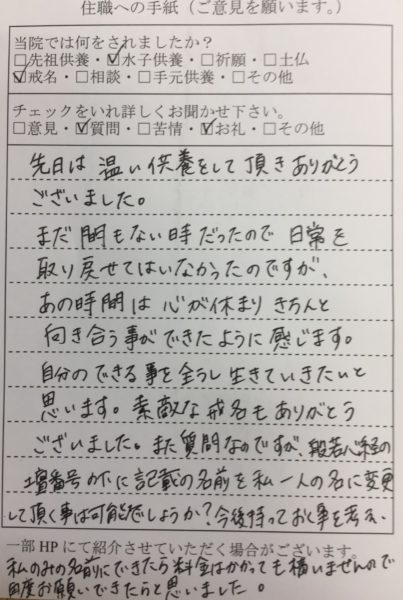 住職への手紙（ご意見を願います。）
当院では何をされましたか？
□先祖供養・☑水子供養・□祈願・□土仏
☑戒名・□相談・□手元供養・□その他
チェックをいれ詳しくお聞かせ下さい。
□意見・☑質問・□苦情・☑お礼・□その他
先日は温い供養をして頂きありがとう
ございました。
まだ間もない時だったので日常を
取り戻せてはいなかったのですが、
あの時間は心が休まりきちんと
向き合う事ができたように感じます。
自分のできる事を全うし生きていきたいと
思います。素敵な戒名もありがとう
ございました。また質問なのですが、般若心経の
壇番号の下に記載の名前を私一人の名に変更
して頂く事は可能でしょうか？今後持っておく事を考え、
一部HPにて紹介させていただく場合がございます。
私のみの名前にできたら料金はかかっても構いませんので
再度お願いできたらと思いました。